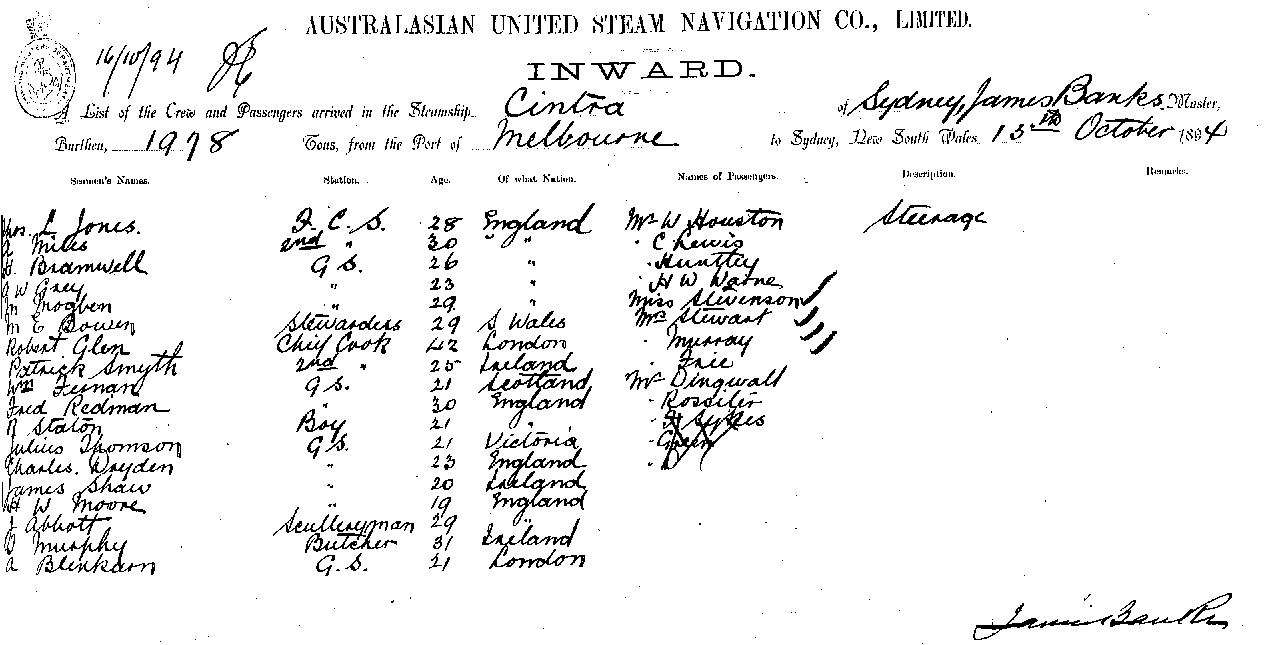 AUSTRALASIAN UNITED STEAM NAVIGATION CO., LIMITED.
16/10/94
INWARD.
A List of the Crew and Passengers arrived in the Steamship Cintra of Sydney, James Banks, Master,
Burthen, 1978 Tons, from the Port of Melbourne to Sydney, New South Wales, 15th October 1894
Seamen's Names. Station. Age. Of what Nation. Names of Passengers. Description. Remarks.
Jones. F. C. S. 28 England Mr W Houston Steerage
A Miles 2nd " 30 " " " C Lewis
Bramwell G S. 26 " " Huntley
W Grey " 23 " " H W Warne
M Mogben " 29. " Miss Stevenson
M E Bowen Stewardess 29 S Wales Mrs Stewart
Robert Glen Chief Cook 42 London " Murray
Patrick Smyth 2nd " 25 Ireland "
Wm G S. 21 Scotland Mr Dingwall
Fred Redman " 30 England " Rossiter
R Staton Boy 21 " Sykes
Julius Thomson G S. 21 Victoria " Green
Charles Dryden " 23 England "
James Shaw " 20 Ireland
H W Moore " 19 England
Abbott Sculleryman 29 "
Murphy Butcher 31 Ireland
A Blinkarn G. S. 21 London
James Banks